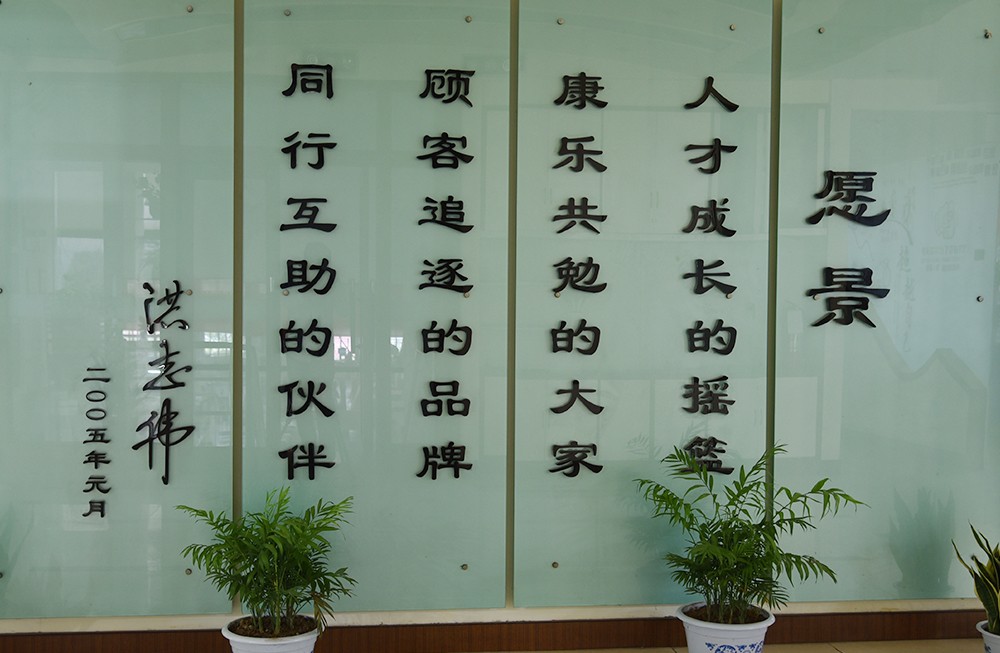 愿景
人才成长的摇篮
康乐共勉的大家
顾客追逐的品牌
同行互助的伙伴
洪志祎
二〇〇五年元月